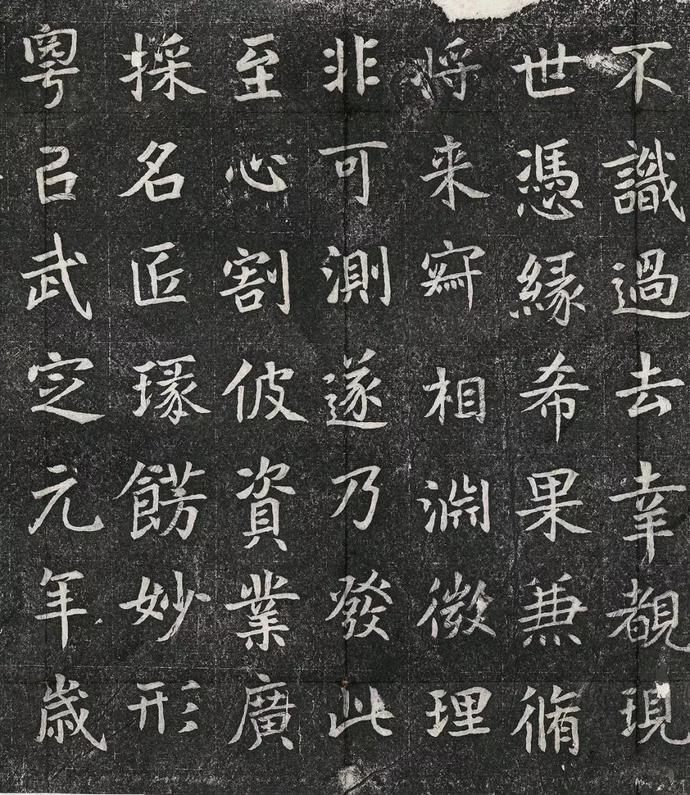 不識過去幸覩現
世憑緣希果兼脩
将来冥相淵微理
非可測遂乃發此
至心割彼資業廣
採名匠瑑餝妙形
粵以武定元年歲